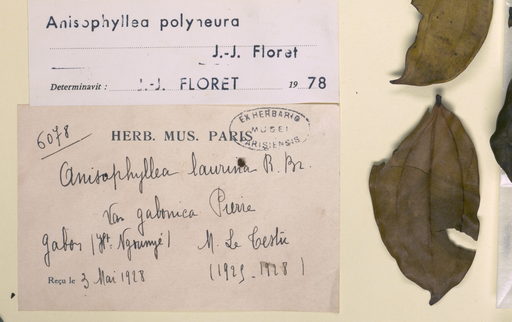 Anisophyllea polyneura
J.-J. Floret
Determinavit : J.-J. FLORET 1978
6078
HERB. MUS. PARIS
EX HERBARIO
MUSEI
PARISIENSIS
Anisophyllea laurina R. Br.
Var gabonica Pierre
Gabon (Ht. Ngounyé) M. Le Testu
Reçu le 3 Mai 1928 (1925-1928)